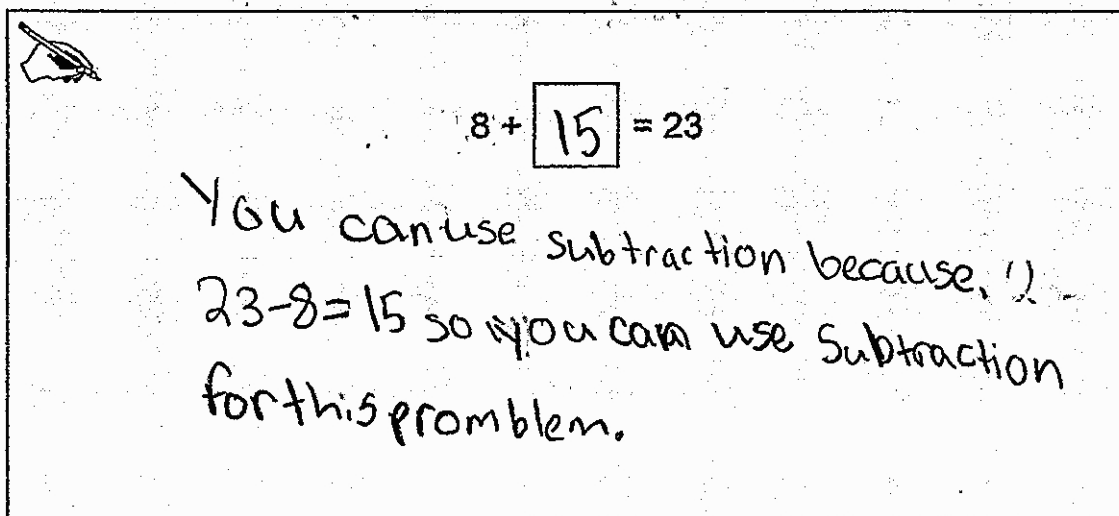 8 + 15 = 23
You can use subtraction because,
23-8=15 so you can use subtraction
for this promblem.